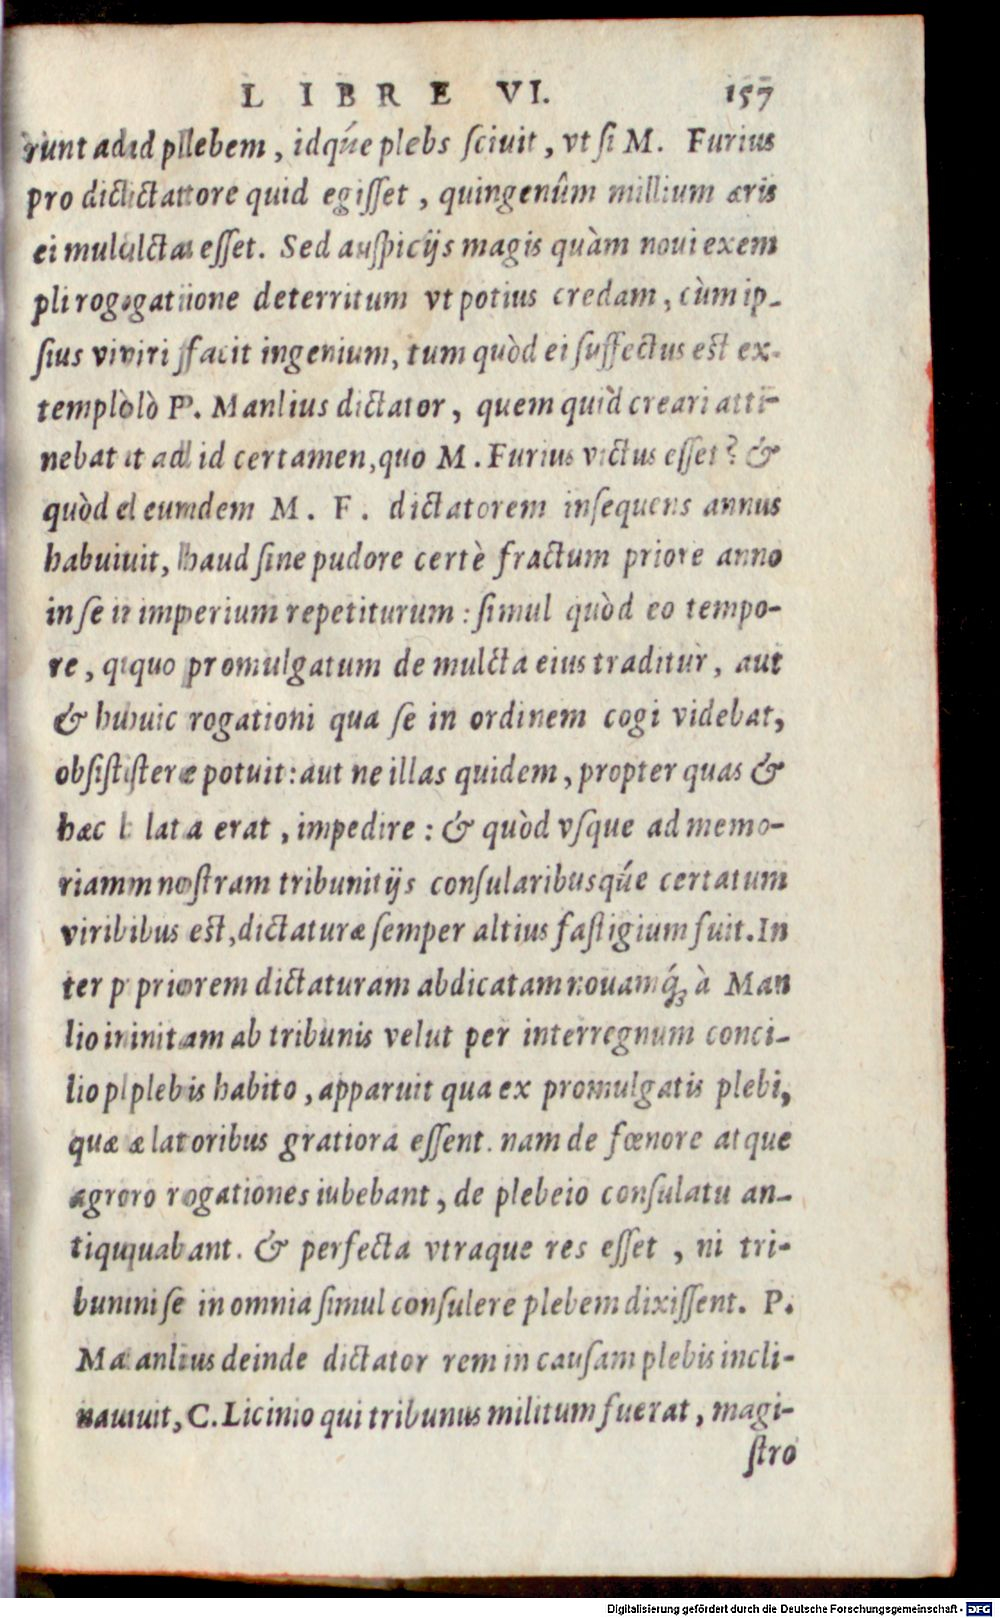 LIBRE VI. 157
runt ad id plebem, idq́ue plebs sciuit, vt si M. Furius
pro dictatore quid egisset, quingenûm millium æris
ei mulcta esset. Sed auspicijs magis quàm noui exem
pli rogatione deterritum vt potius credam, cùm ip-
sius viri facit ingenium, tum quòd ei suffectus est ex-
templò P. Manlius dictator, quem quid creari atti-
nebat ad id certamen, quo M. Furius victus esset? &
quòd eumdem M. F. dictatorem insequens annus
habuit, haud sine pudore certè fractum priore anno
in se imperium repetiturum: simul quòd eo tempo-
re, quo promulgatum de mulcta eius traditur, aut
& huic rogationi qua se in ordinem cogi videbat,
obsistere potuit: aut ne illas quidem, propter quas &
hæc lata erat, impedire: & quòd vsque ad memo-
riam nostram tribunitijs consularibusq́ue certatum
viribus est, dictaturæ semper altius fastigium fuit. In
ter priorem dictaturam abdicatam nouamq́; à Man
lio initam ab tribunis velut per interregnum conci-
lio plebis habito, apparuit qua ex promulgatis plebi,
quæ latoribus gratiora essent. nam de fœnore atque
agro rogationes iubebant, de plebeio consulatu an-
tiquabant. & perfecta vtraque res esset, ni tri-
buni se in omnia simul consulere plebem dixissent. P.
Manlius deinde dictator rem in causam plebis incli-
nauit, C. Licinio qui tribunus militum fuerat, magi-
stro
Digitalisierung gefördert durch die Deutsche Forschungsgemeinschaft - DFG